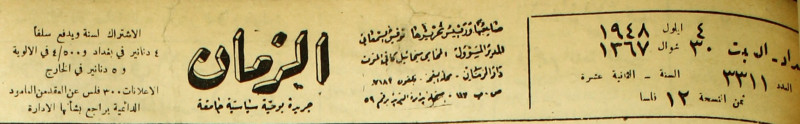 بغداد - السبت
٤ ايلول ١٩٤٨
٣٠ شوال ١٣٦٧
العدد ٣٣١١
السنة - الثانية عشرة
ثمن النسخة ١٢ فلسا
صاحبها ورئيس تحريرها توفيق السمعاني
المدير المسؤول: المحامي ميخائيل
دار الزمان
ص. ب ١٢٣
رقم ٥٩
الزمان
جريدة يومية سياسية جامعة
الاشتراك لسنة ويدفع سلفا
٤ دنانير في بغداد و ٤/٥٠٠ في الالوية
و ٥ دنانير في الخارج
الاعلانات ٣٠٠ فلس عن العقد من العامود
الدائمية يراجع بشأنها الادارة